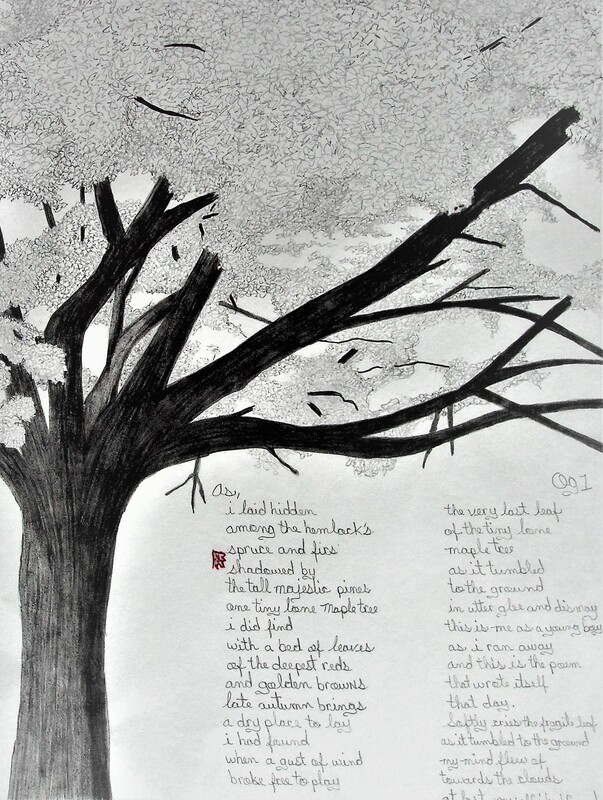 As,
i laid hidden
among the hemlock's
spruce and firs
shadowed by
the tall majestic pines
one tiny lone maple tree
i did find
with a bed of leaves
of the deepest reds
and golden browns
late autumn brings
a dry place to lay
i had found
when a gust of wind
broke free to play
the very last leaf
of the tiny lone
maple tree
as it tumbled
to the ground
in utter glee and dismay
this is me as a young boy
as i ran away
and this is the poem
that wrote itself
that day.
Softly cries the fragile leaf
as it tumbled to the ground
my mind flew of
towards the clouds
at last